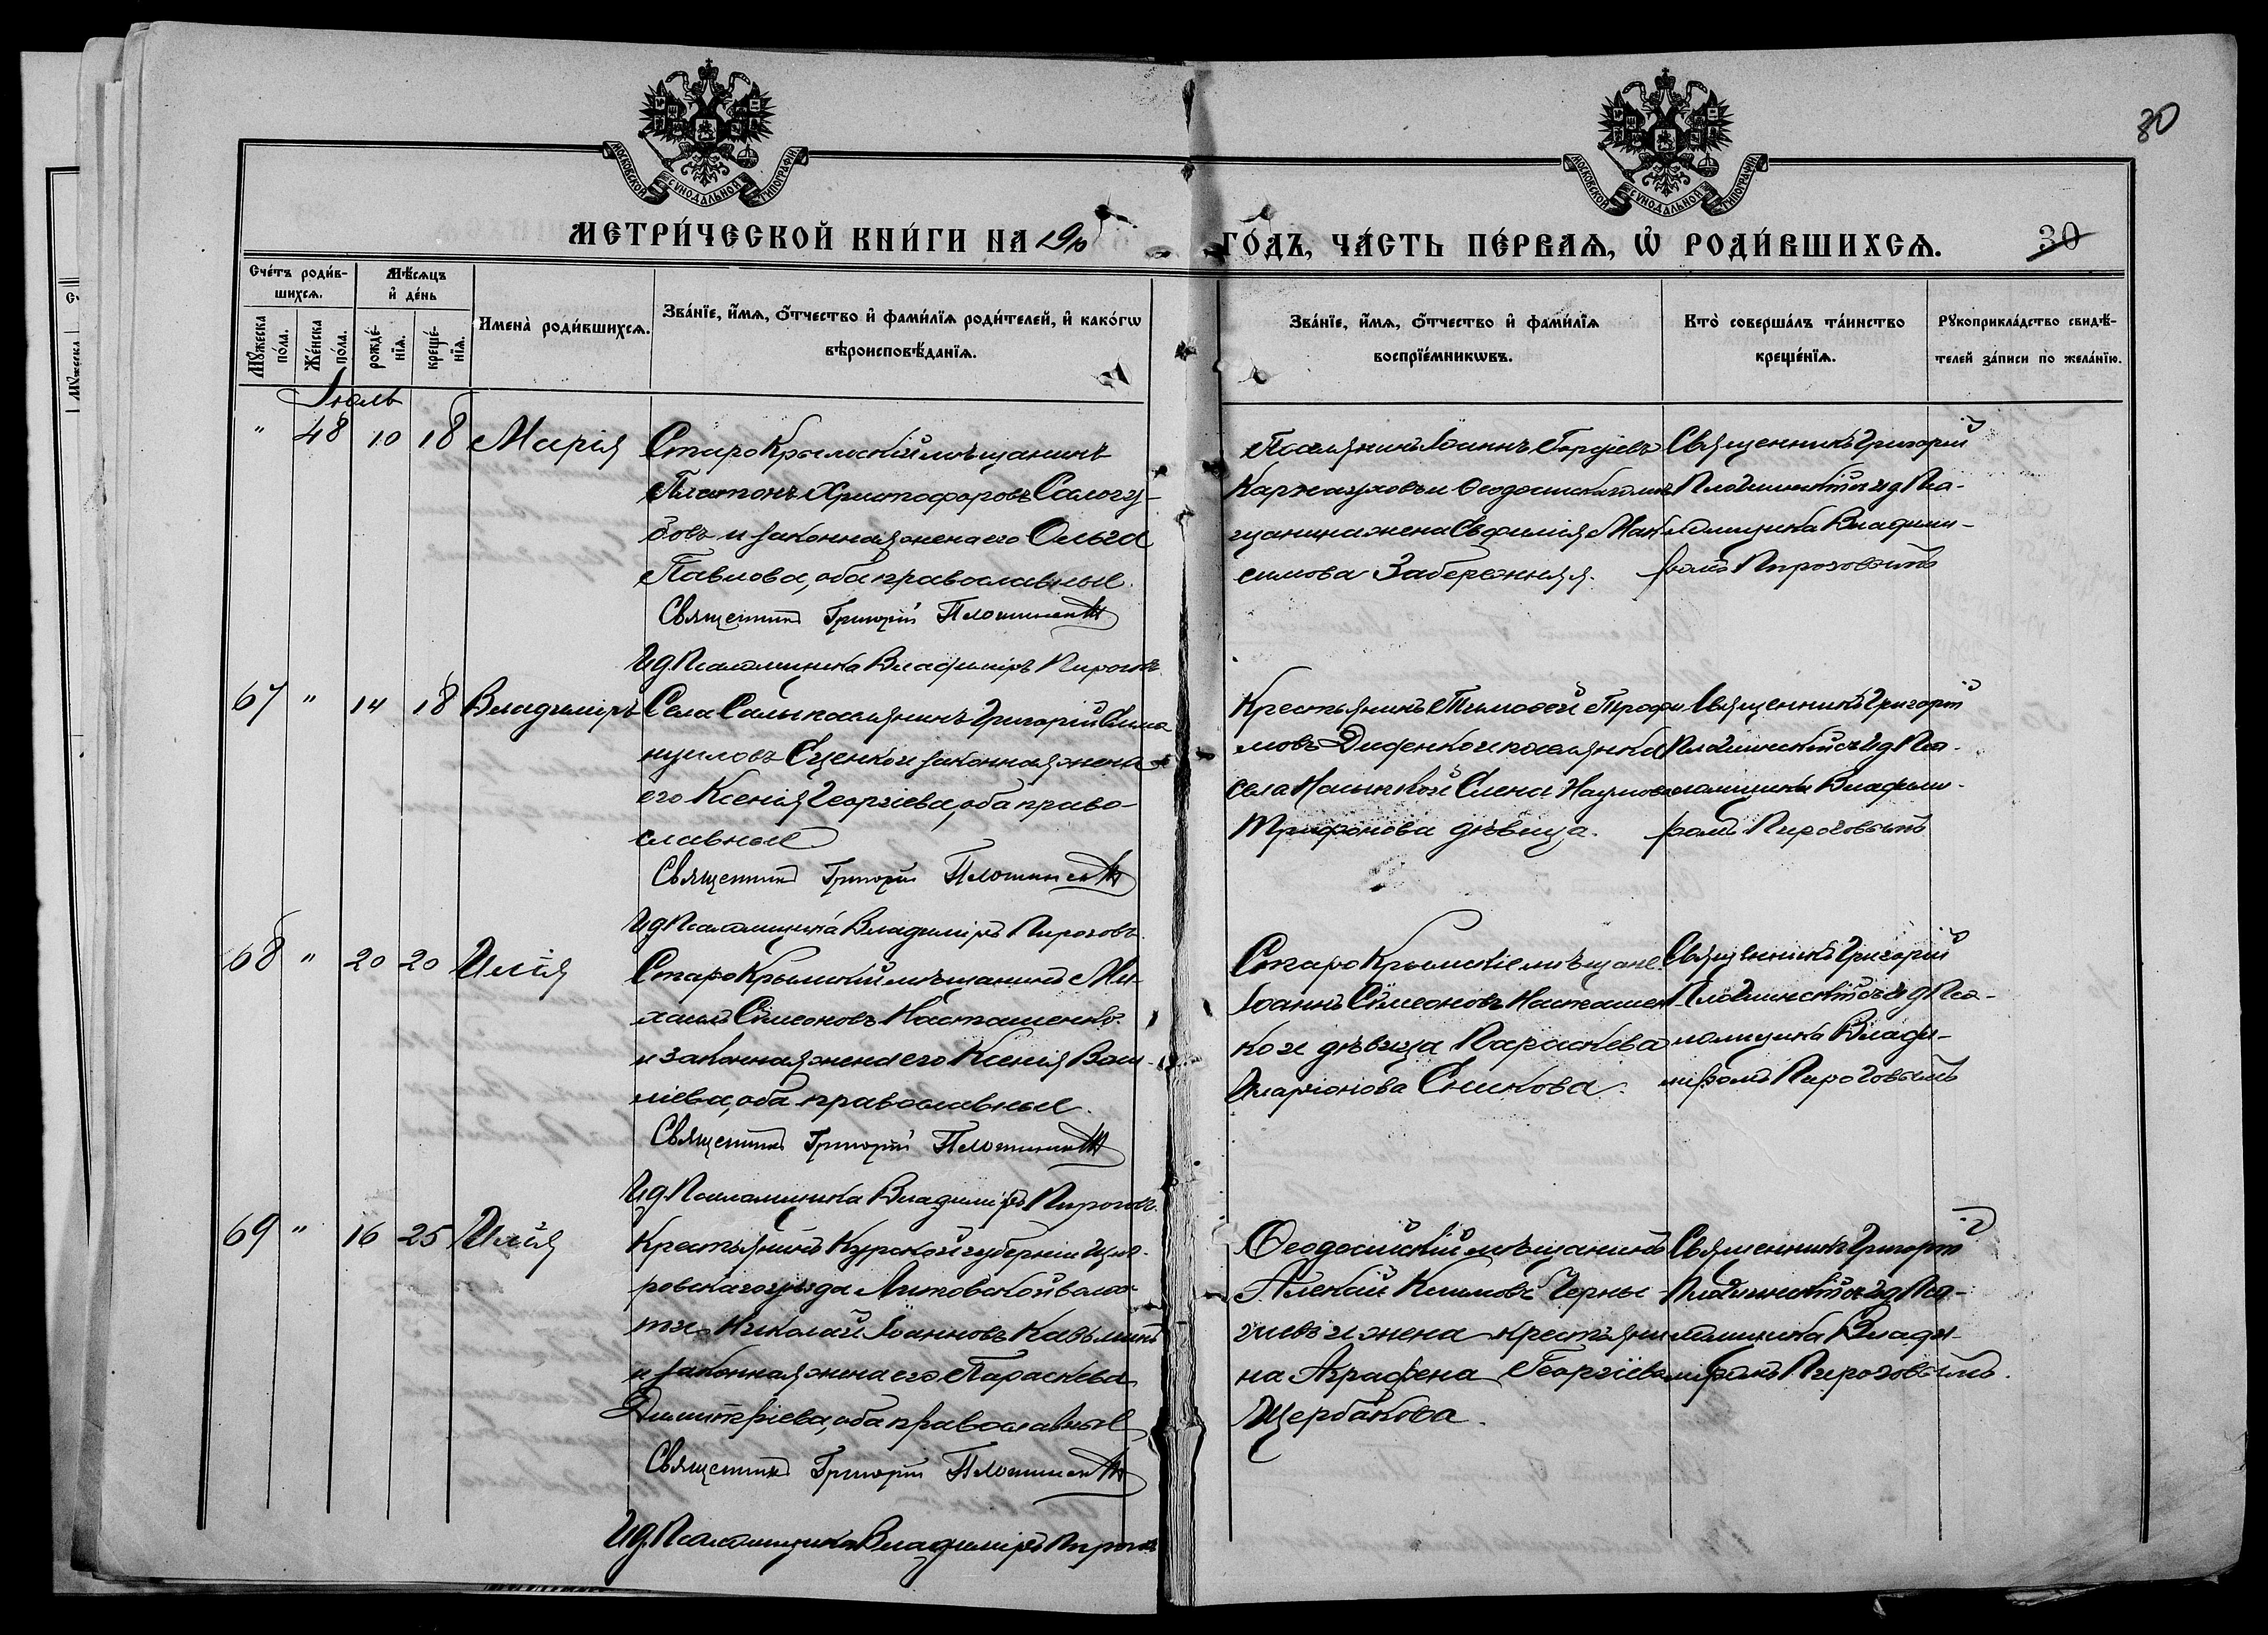 80
МОСКОВСКОЙ СѴНОДАЛЬНОЙ ТИПОГРАФІИ
МОСКОВСКОЙ СѴНОДАЛЬНОЙ ТИПОГРАФІИ
МЕТРИ́ЧЕСКОЙ КНИ́ГИ НА 1910
ГО́ДЪ, ЧА́СТЬ ПЕ́РВАѦ, Ѡ҆ РОДИ́ВШИХСѦ.
30
Сче́тъ роди́в-
шихсѧ.
Мѣ́сѧцъ
и҆ де́нь
Мꙋ́жеска
по́ла.
Же́нска
по́ла.
рожде́-
нїѧ.
креще́-
нїѧ.
Имена̀ роди́вшихсѧ.
Зва́нїе, и҆́мѧ, ѻ҆́тчество и҆ фами́лїѧ роди́телей, и҆ како́гѡ
вѣроисповѣ́данїѧ.
Зва́нїе, и҆́мѧ, ѻ҆́тчество и҆ фами́лїѧ
воспрїе́мникѡвъ.
Кто̀ соверша́лъ та́инство
креще́нїѧ.
Рꙋкоприкла́дство свидѣ́-
телей за́писи по жела́нїю.
Іюль
" 48 10 18 Марія
Старокрымскій мѣщанинъ
Платонъ Христофоровъ Салогу-
бовъ и законная жена его Ольга
Павлова, оба православные.
Священникъ Григорій
И д. Псаломщика Владиміръ Пироговъ
Поселянинъ Іоаннъ
и Ѳеодосійскаго мѣ-
щанина жена Евфимія Мак-
симова Забережняя.
Священникъ Григорій
съ и д Пса-
ломщика Владими-
ромъ Пироговымъ
67 " 14 18 Владиміръ
Села Салы поселянинъ Григорій
Еценко и законная жена
его Ксенія Георгіева, оба право-
славные
Священникъ Григорій
И д Псаломщика Владиміръ Пироговъ
Крестьянинъ Тимоѳей Трофи-
мовъ Диденко и поселянка
села Елена Наумова
Трифонова дѣвица.
Священникъ Григорій
съ и д Пса-
ломщика Владими-
ромъ Пироговымъ
68 " 20 20 Илія
Старокрымскій мѣщанинъ Ми-
хаилъ Сѵмеоновъ Насташенко
и законная жена его Ксенія Васи-
ліева, оба православные.
Священникъ Григорій
И д. Псаломщика Владиміръ Пироговъ.
Старокрымскіе мѣщане
Іоаннъ Сѵмеоновъ Насташен-
ко и дѣвица Параскева
Иларіонова Сникова.
Священникъ Григорій
съ и д Пса-
ломщика Влади-
міромъ Пироговымъ
69 " 16 25 Илія
Крестьянинъ Курской губерніи Щиг-
ровскаго уѣзда Липовской волос-
ти Николай Іоанновъ
и законная жена его Параскева
Димитріева, оба православные
Священникъ Григорій
И д. Псаломщика Владиміръ Пироговъ
Ѳеодосійскій мѣщанинъ
Алексій Климовъ Черны-
шевъ и жена крестьяни-
на Аграфена Георгіева
Щербакова.
Священникъ Григорій
съ и д Пса-
ломщика Влади-
міромъ Пироговымъ.